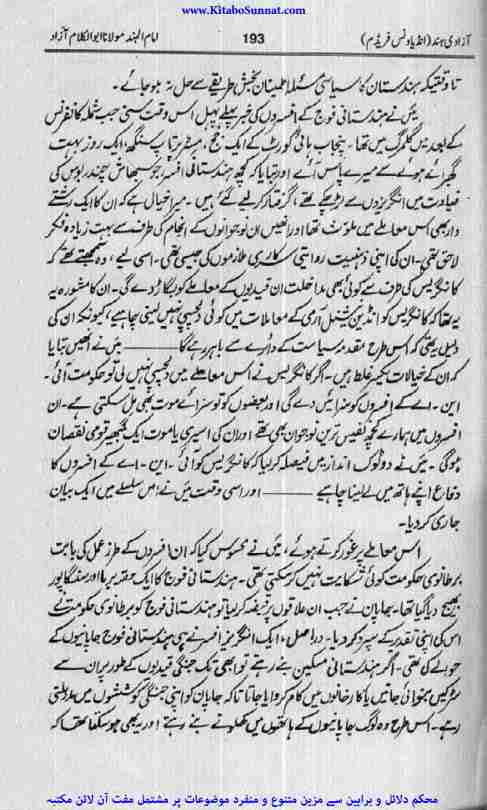 www.KitaboSunnat.com
آزادی ہند (انڈیا ونس فریڈم)
193
امام الہند مولانا ابوالکلام آزاد
تا وقتیکہ ہندستان کا سیاسی مسئلہ اطمینان بخش طریقے سے حل نہ ہو جائے۔
میں نے ہندستانی فوج کے افسروں کی خبر پہلے پہل اس وقت سنی جب شملہ کانفرنس
کے بعد میں گلمرگ میں تھا۔ پنجاب ہائی کورٹ کے ایک جج، مسٹر پرتاپ سنگھ، ایک روز بہت
گھبرائے ہوئے میرے پاس آئے اور بتایا کہ کچھ ہندستانی افسر، جو سبھاش چندر بوس کی
قیادت میں انگریزوں سے لڑ چکے تھے، گرفتار کر لیے گئے ہیں۔ میرا خیال ہے کہ ان کا ایک رشتے
دار بھی اس معاملے میں ملوث تھا اور انھیں ان نوجوانوں کے انجام کی طرف سے بہت زیادہ فکر
لاحق تھی۔ ان کی اپنی ذہنیت روایتی سرکاری ملازموں کی جیسی تھی۔ اسی لیے، وہ سمجھتے تھے کہ
کانگریس کی طرف سے کوئی بھی مداخلت ان قیدیوں کے معاملے کو بگاڑ دے گی۔ ان کا مشورہ یہ
یہ تھا کہ کانگریس کو انڈین نیشنل آرمی کے معاملات میں کوئی دلچسپی نہیں لینی چاہیے، کیونکہ ان کی
دلیل یہ تھی کہ اس طرح مقدمہ سیاست کے دائرے سے باہر رہے گا ——— میں نے انھیں بتایا
کہ ان کے خیالات یکسر غلط ہیں۔ اگر کانگریس نے اس معاملے میں دلچسپی نہیں لی تو حکومت آئی۔
این۔ اے کے افسروں کو سزائیں دے گی اور بعضوں کو تو سزائے موت بھی مل سکتی ہے۔ ان
افسروں میں ہمارے کچھ نفیس ترین نوجوان بھی تھے اور ان کی اسیری یا موت ایک گمبھیر قومی نقصان
ہوگی۔ میں نے دو ٹوک انداز میں فیصلہ کر لیا کہ کانگریس کو آئی۔ این۔ اے کے افسروں کا
دفاع اپنے ہاتھ میں لے لینا چاہیے ——— اور اسی وقت میں نے اس سلسلے میں ایک بیان
جاری کر دیا۔
اس معاملے پر غور کرتے ہوئے، میں نے محسوس کیا کہ ان افسروں کے طرز عمل کی بابت
برطانوی حکومت کوئی شکایت نہیں کر سکتی تھی۔ ہندستانی فوج کا ایک حصہ برما اور سنگاپور
بھیج دیا گیا تھا۔ جاپان نے جب ان علاقوں پر قبضہ کر لیا تو ہندستانی فوج کو برطانوی حکومت نے
اس کی اپنی تقدیر کے سپرد کر دیا۔ دراصل، ایک انگریز افسر نے ہی ہندستانی فوج جاپانیوں کے
حوالے کی تھی۔ اگر ہندستانی مسکین بنے رہتے تو ابھی تک جنگی قیدیوں کے طور پر ان سے
سڑکیں بنوائی جاتیں یا کارخانوں میں کام کروایا جاتا تاکہ جاپان کو اپنی جنگی کوششوں میں مدد ملتی
رہے۔ اس طرح وہ لوگ جاپانیوں کے ہاتھوں میں کھلونے بنے رہتے اور یہ بھی ہو سکتا تھا کہ
محکم دلائل و براہین سے مزین متنوع و منفرد موضوعات پر مشتمل مفت آن لائن مکتبہ